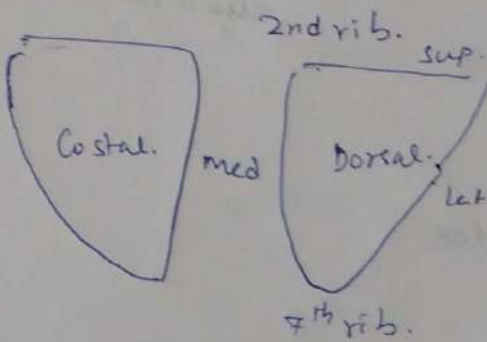 2nd rib.
sup.
Costal.
med
Dorsal.
lat
7th rib.